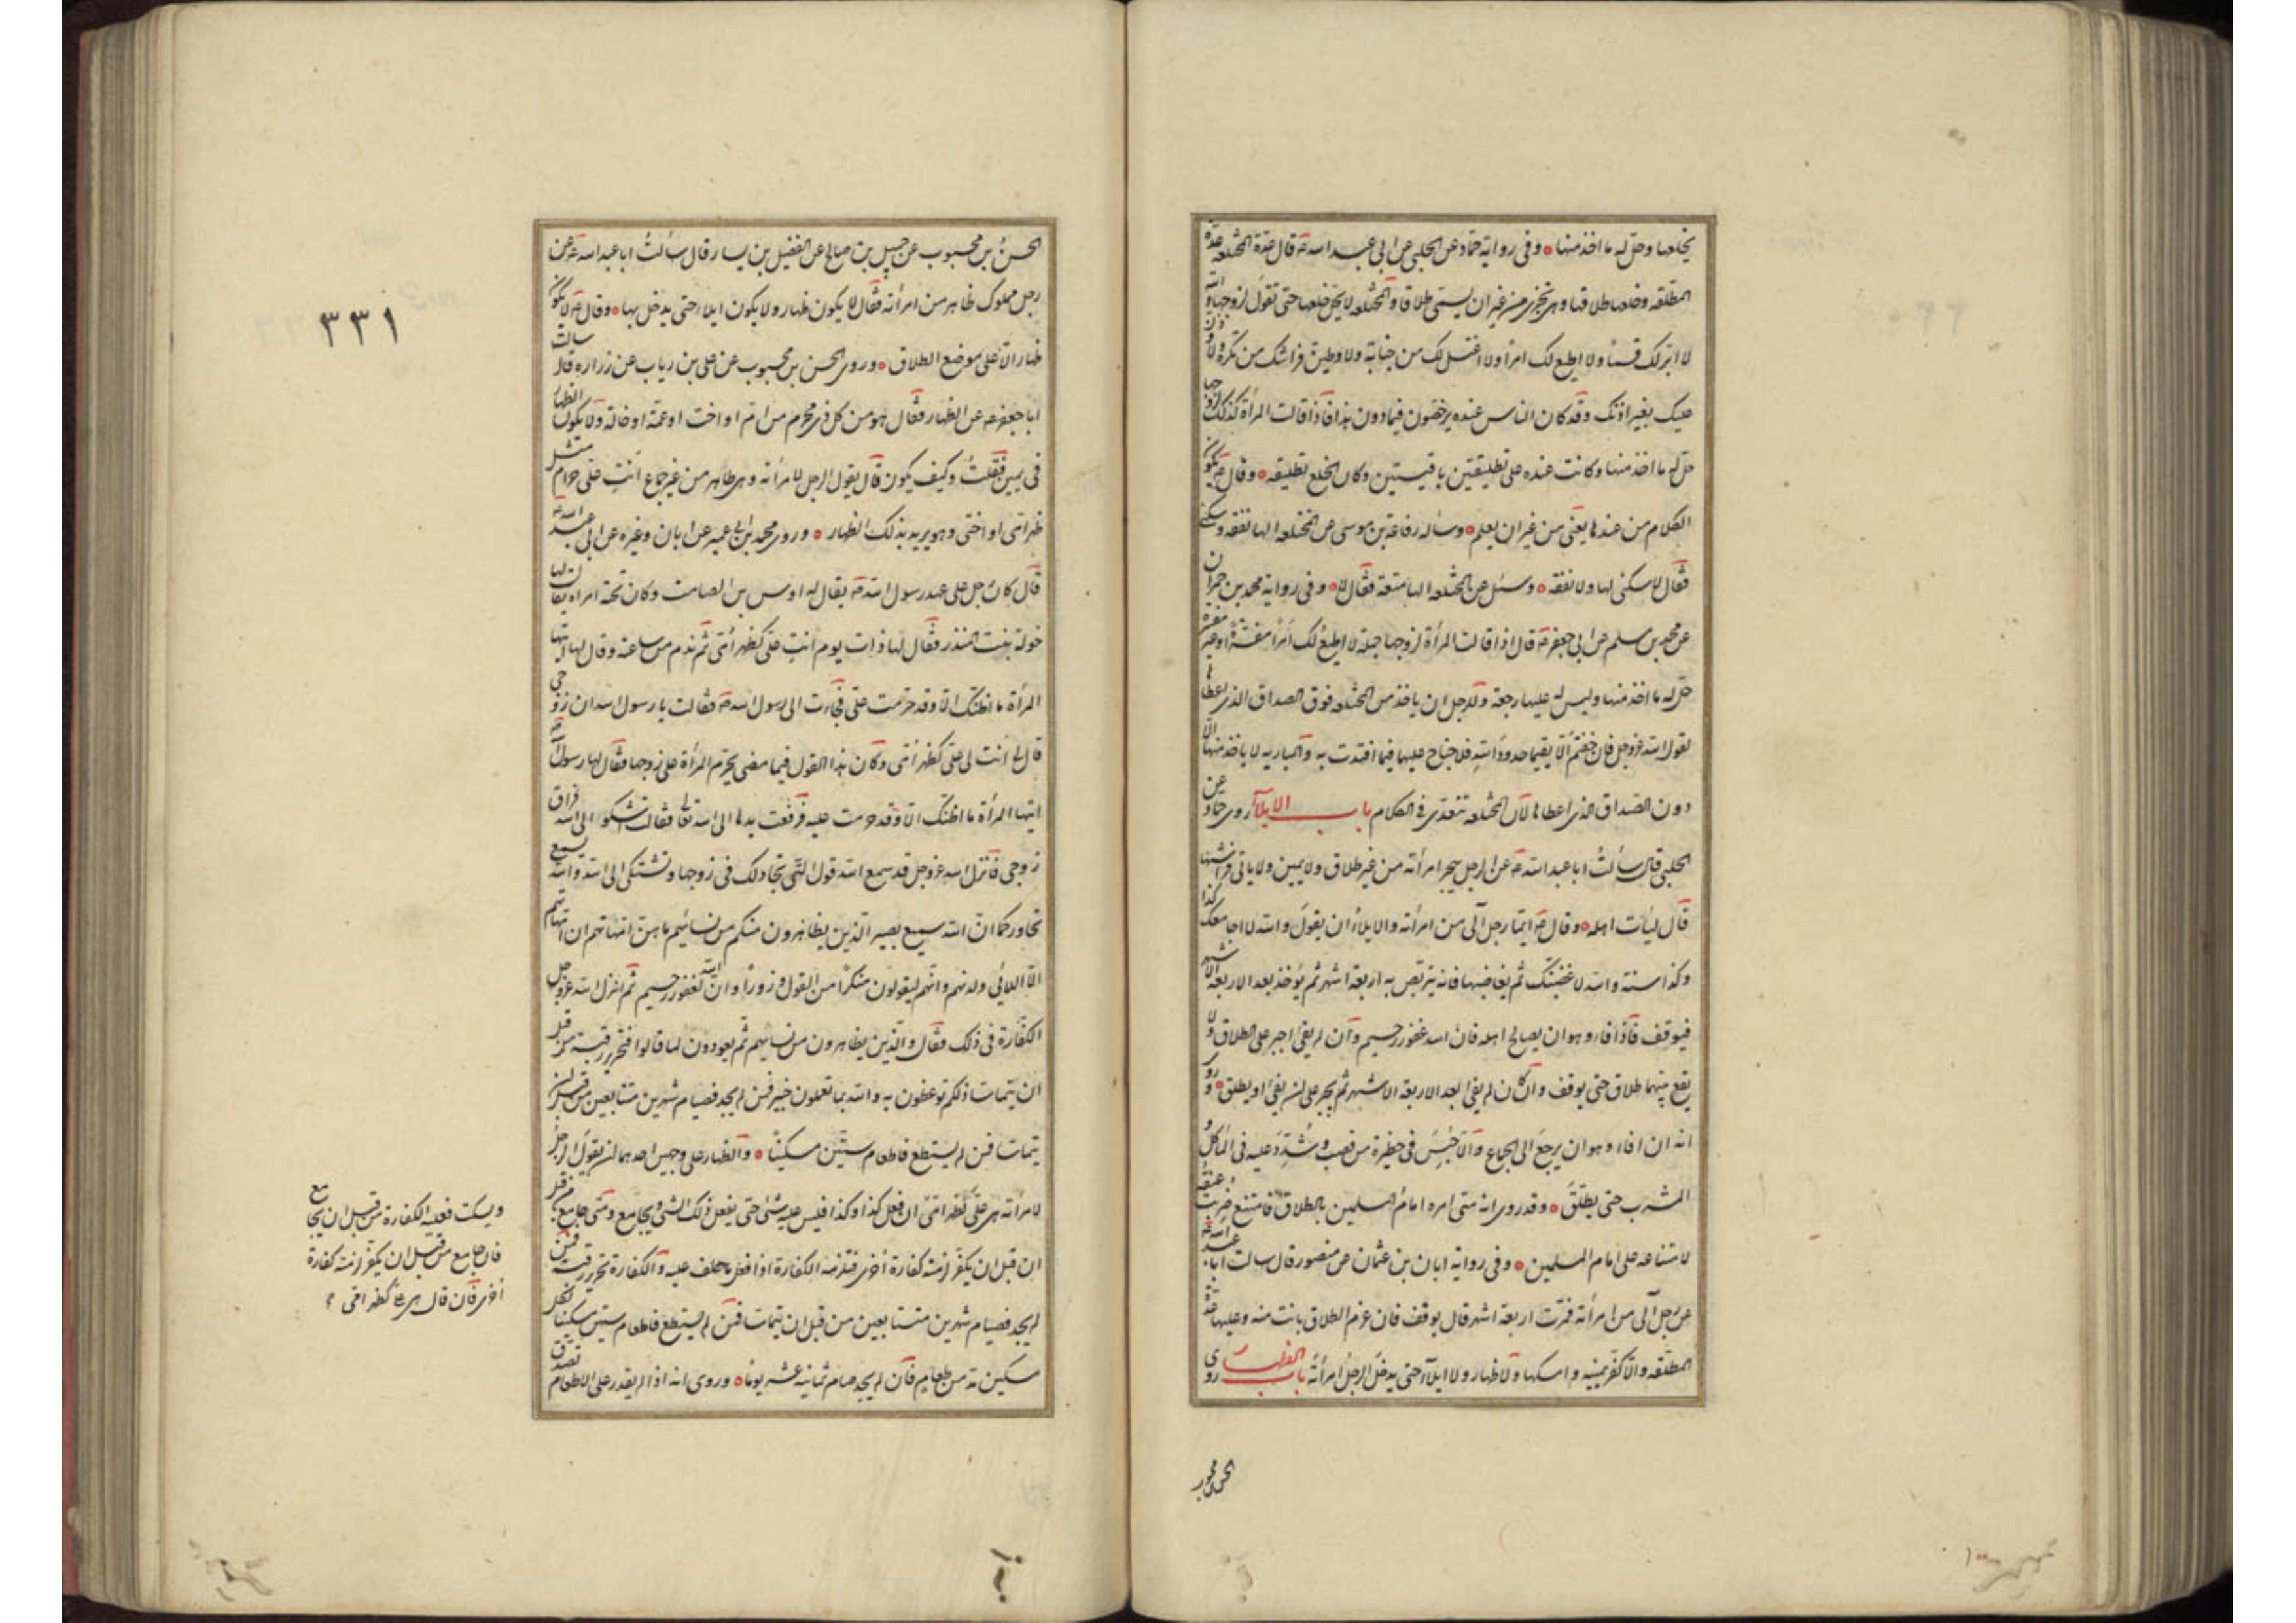 يخلعها وحل له ما اخذ منها ه وفى رواية حماد عن الحلبى عن ابى عبد الله ع قال عدة المختلعه عدة
المطلقه وخلعها طلاقها وهى تجزى من غير ان يسمى طلاقا والمختلعه لا يحل خلعها حتى تقول لزوجها والله
لا ابر لك قسما ولا اطيع لك امرا ولا اغتسل لك من جنابة ولاوطين فراشك من تكرهه ولاوذنن
عليك بغير اذنك وقد كان الناس عنده يرخصون فيما دون هذا فاذا قالت المرأة كذلك لزوجها
حل له ما اخذ منها وكانت عنده على تطليقتين باقيتين وكان الخلع تطليقه ه وقال ع يكون
الكلام من عندها يعنى من غير ان يعلم ه وساله رفاعة بن موسى عن المختلعه الها نفقه وسكنى
فقال لا سكنى لها ولا نفقه ه وسئل عن المختلعه الها متعة فقال لا ه وفى رواية محمد بن حمران
عن محمد بن مسلم عن ابى جعفر ع قال اذا قالت المرأة لزوجها جملة لا اطيع لك امرا مفسرة او غير مفسرة
حل له ما اخذ منها وليس له عليها رجعة وللرجل ان ياخذ من المختلعه فوق الصداق الذى اعطاها
لقول الله عز وجل فان خفتم الا يقيما حدود الله فلا جناح عليهما فيما افتدت به والمباريه لا ياخذ منها الا
دون الصداق الذى اعطاها لان المختلعه تتعدى فى الكلام باب الايلاء روى حماد عن
الحلبى قال سألت ابا عبد الله ع عن الرجل يهجر امرأته من غير طلاق ولا يمين ولا ياتى فراشها
قال ليأت اهله ه وقال ع ايما رجل آلى من امرأته والايلاء ان يقول والله لا اجامعك كذا
وكذا سنة والله لاغضبنك ثم يغاضبها فانه يتربص به اربعة اشهر ثم يؤخذ بعد الاربعة الاشهر
فيوقف فاذا فاء وهو ان يصالح اهله فان الله غفور رحيم وان لم يفئ اجبر على الطلاق ولا
يقع بينهما طلاق حتى يوقف وان كان لم يفئ بعد الاربعة الاشهر ثم يجبر على ان يفئ او يطلق ه وروى
انه ان افاء وهو ان يرجع الى الجماع والا حبس فى حظيرة من قصب وشدد عليه فى المأكل و
المشرب حتى يطلق ه وقد روى انه متى امره امام المسلمين بالطلاق فامتنع ضربت عنقه
لامتناعه على امام المسلمين ه وفى رواية ابان بن عثمان عن منصور قال سالت ابا عبد الله ع
عن رجل آلى من امرأته فمرت اربعة اشهر قال يوقف فان عزم الطلاق بانت منه وعليها عدة
المطلقه والا كفر يمينه وامسكها ولا ظهار ولا ايلاء حتى يدخل الرجل امرأته باب الظهار روى
الحسن بن محبوب
٣٣١
الحسن بن محبوب عن جميل بن صالح عن الفضيل بن يسار قال سألت ابا عبد الله ع عن
رجل مملوك ظاهر من امرأته فقال لا يكون ظهار ولا يكون ايلاء حتى يدخل بها ه وقال ع لا يكون
ظهار الا على موضع الطلاق ه وروى الحسن بن محبوب عن على بن رياب عن زراره قال سالت
ابا جعفر ع عن الظهار فقال هو من كل ذى محرم من ام او اخت او عمة او خالة ولا يكون الظهار
فى يمين فقلت وكيف يكون قال يقول الرجل لامرأته وهى طاهر من غير جماع انت على حرام مثل
ظهر امى او اختى وهو يريد بذلك الظهار ه وروى محمد بن ابى عمير عن ابان وغيره عن ابى عبد الله ع
قال كان رجل على عهد رسول الله ص يقال له اوس بن الصامت وكان تحته امراه يقال لها
خولة بنت المنذر فقال لها ذات يوم انت على كظهر امى ثم ندم من ساعته وقال لها ايتها
المرأة ما اظنك الا وقد حرمت على فجاءت الى رسول الله ص فقالت يا رسول الله ان زوجى
قال لى انت على كظهر امى وكان هذا القول فيما مضى يحرم المرأة على زوجها فقال لها رسول الله ص
ايتها المرأة ما اظنك الا وقد حرمت عليه فرفعت يدها الى الله تعالى فقالت اشكو الى الله فراق
زوجى فانزل الله عز وجل قد سمع الله قول التى تجادلك فى زوجها وتشتكى الى الله والله يسمع
تحاوركما ان الله سميع بصير الذين يظاهرون منكم من نسائهم ما هن امهاتهم ان امهاتهم
الا اللائى ولدنهم وانهم ليقولون منكرا من القول وزورا وان الله لعفو غفور رحيم ثم انزل الله عز وجل
الكفارة فى ذلك فقال والذين يظاهرون من نسائهم ثم يعودون لما قالوا فتحرير رقبة من قبل
ان يتماسا ذلكم توعظون به والله بما تعملون خبير فمن لم يجد فصيام شهرين متتابعين من قبل ان
يتماسا فمن لم يستطع فاطعام ستين مسكينا ه والظهار على وجهين احدهما ان يقول الرجل
لامرأته هى على كظهر امى ان فعل كذا وكذا فليس عليه شئ حتى يفعل ذلك الشئ ويجامع ومتى جامع من قبل
ان قبل ان يكفر لزمته كفارة اخرى فتلزمه الكفارة اذا فعل ما حلف عليه والكفارة تحرير رقبة فمن
لم يجد فصيام شهرين متتابعين من قبل ان يتماسا فمن لم يستطع فاطعام ستين مسكينا لكل
مسكين مد من طعام فان لم يجد صام ثمانية عشر يوما ه وروى انه اذا لم يقدر على الاطعام تصدق
ويسكت فعليه الكفارة من قبل ان يجامع
فان جامع من قبل ان يكفر لزمته كفارة
اخرى فان قال هى على كظهر امى